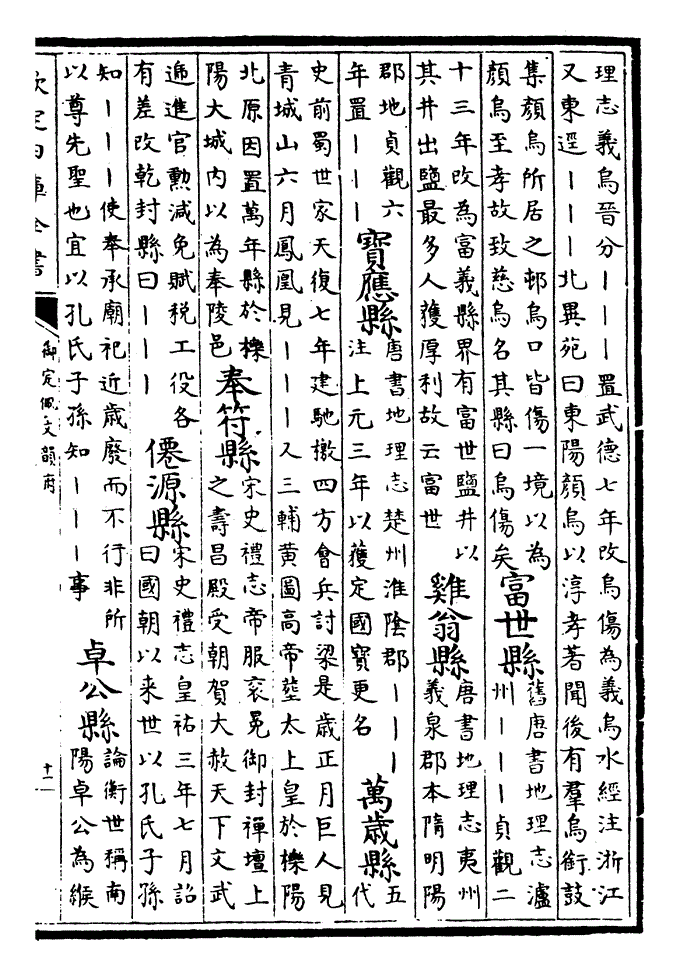 理志義烏晉分｜｜｜置武德七年改烏傷為義烏水經注浙江
又東逕｜｜｜北異苑曰東陽顏烏以淳孝著聞後有羣烏銜鼓
集顏烏所居之邨烏口皆傷一境以為
顏烏至孝故致慈烏名其縣曰烏傷矣
富世縣
舊唐書地理志瀘
州｜｜｜貞觀二
十三年改為富義縣界有富世鹽井以
其井出鹽最多人獲厚利故云富世
雞翁縣
唐書地理志夷州
義泉郡本隋明陽
郡地貞觀六
年置｜｜｜
寶應縣
唐書地理志楚州淮陰郡｜｜｜
注上元三年以獲定國寶更名
萬歲縣
五
代
史前蜀世家天復七年建馳檄四方會兵討梁是歲正月巨人見
青城山六月鳳凰見｜｜｜又三輔黄圖高帝塟太上皇於櫟陽
北原因置萬年縣於櫟
陽大城内以為奉陵邑
奉符縣
宋史禮志帝服衮冕御封禪壇上
之壽昌殿受朝賀大赦天下文武
遞進官勲減免賦税工役各
有差改乾封縣曰｜｜｜
僊源縣
宋史禮志皇祐三年七月詔
曰國朝以来世以孔氏子孫
知｜｜｜使奉承廟祀近歲廢而不行非所
以尊先聖也宜以孔氏子孫知｜｜｜事
卓公縣
論衡世稱南
陽卓公為緱
欽定四庫全書
御定佩文韻府